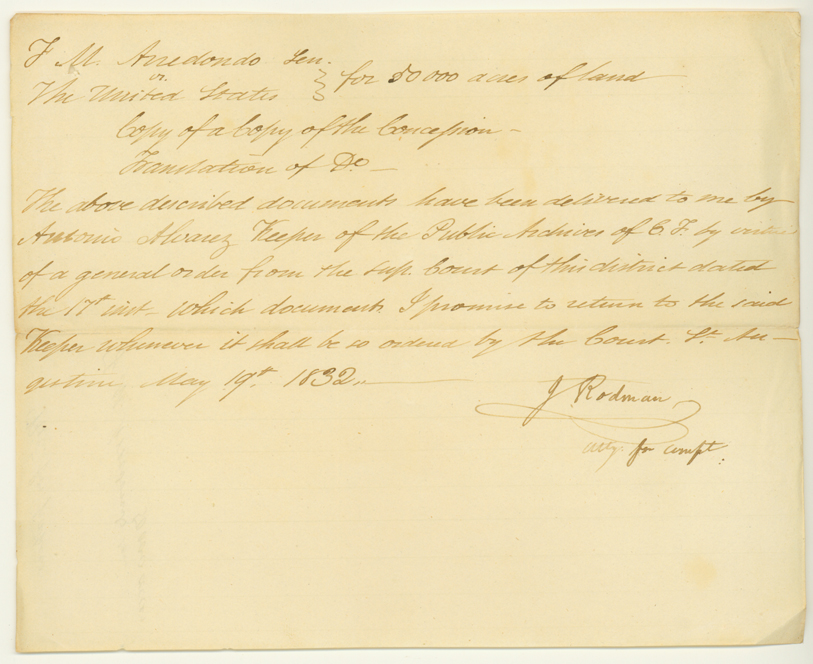 F. M. Arredondo Sen.
vs.
The United States } for 50000 acres of land
Copy of a Copy of the Concession –
Translation of Do –
The above described documents have been delivered to me by
Antonio Alvarez Keeper of the Public Archives of E. F. by virtue
of a general order from the Sup. Court of this district dated
the 17th inst – which documents I promise to return to the said
Keeper whenever it shall be so ordered by the Court. St. Au–
gustine May 19th 1832.
J. Rodman
atty. for compt.